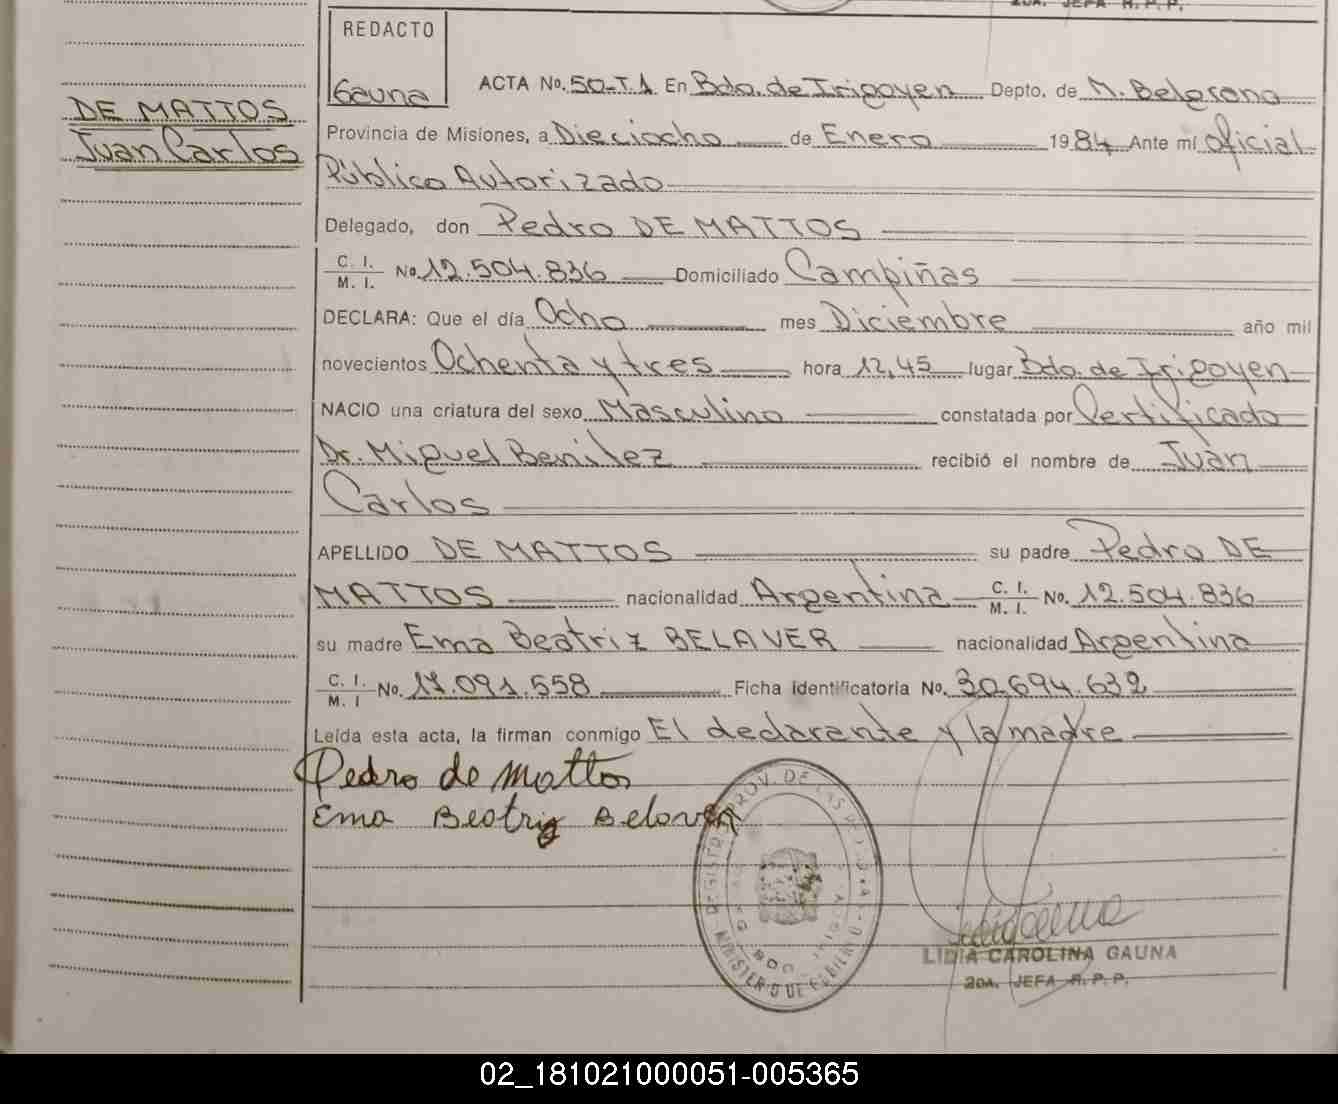 2DA. JEFA R.P.P.
REDACTO
Gauna
ACTA No. 50-T.1 En Bdo. de Irigoyen Depto. de M. Belgrano
DE MATTOS
Juan Carlos
Provincia de Misiones, a Dieciocho de Enero 1984 Ante mí oficial
Público Autorizado
Delegado, don Pedro DE MATTOS
C. I.
M. I. No. 12.504.836 Domiciliado Campiñas
DECLARA: Que el día Ocho mes Diciembre año mil
novecientos Ochenta y tres hora 12,45 lugar Bdo. de Irigoyen
NACIO una criatura del sexo Masculino constatada por Certificado
Dr. Miguel Benitez recibió el nombre de Juan
Carlos
APELLIDO DE MATTOS su padre Pedro DE
MATTOS nacionalidad Argentina C. I. M. I. No. 12.504.836
su madre Ema Beatriz BELAVER nacionalidad Argentina
C. I.
M. I No. 17.091.558 Ficha identificatoria No. 30.694.632
Leída esta acta, la firman conmigo El declarante y la madre
Pedro de Mattos
Ema Beatriz Belaver
LIDIA CAROLINA GAUNA
2DA. JEFA R.P.P.
02_181021000051-005365